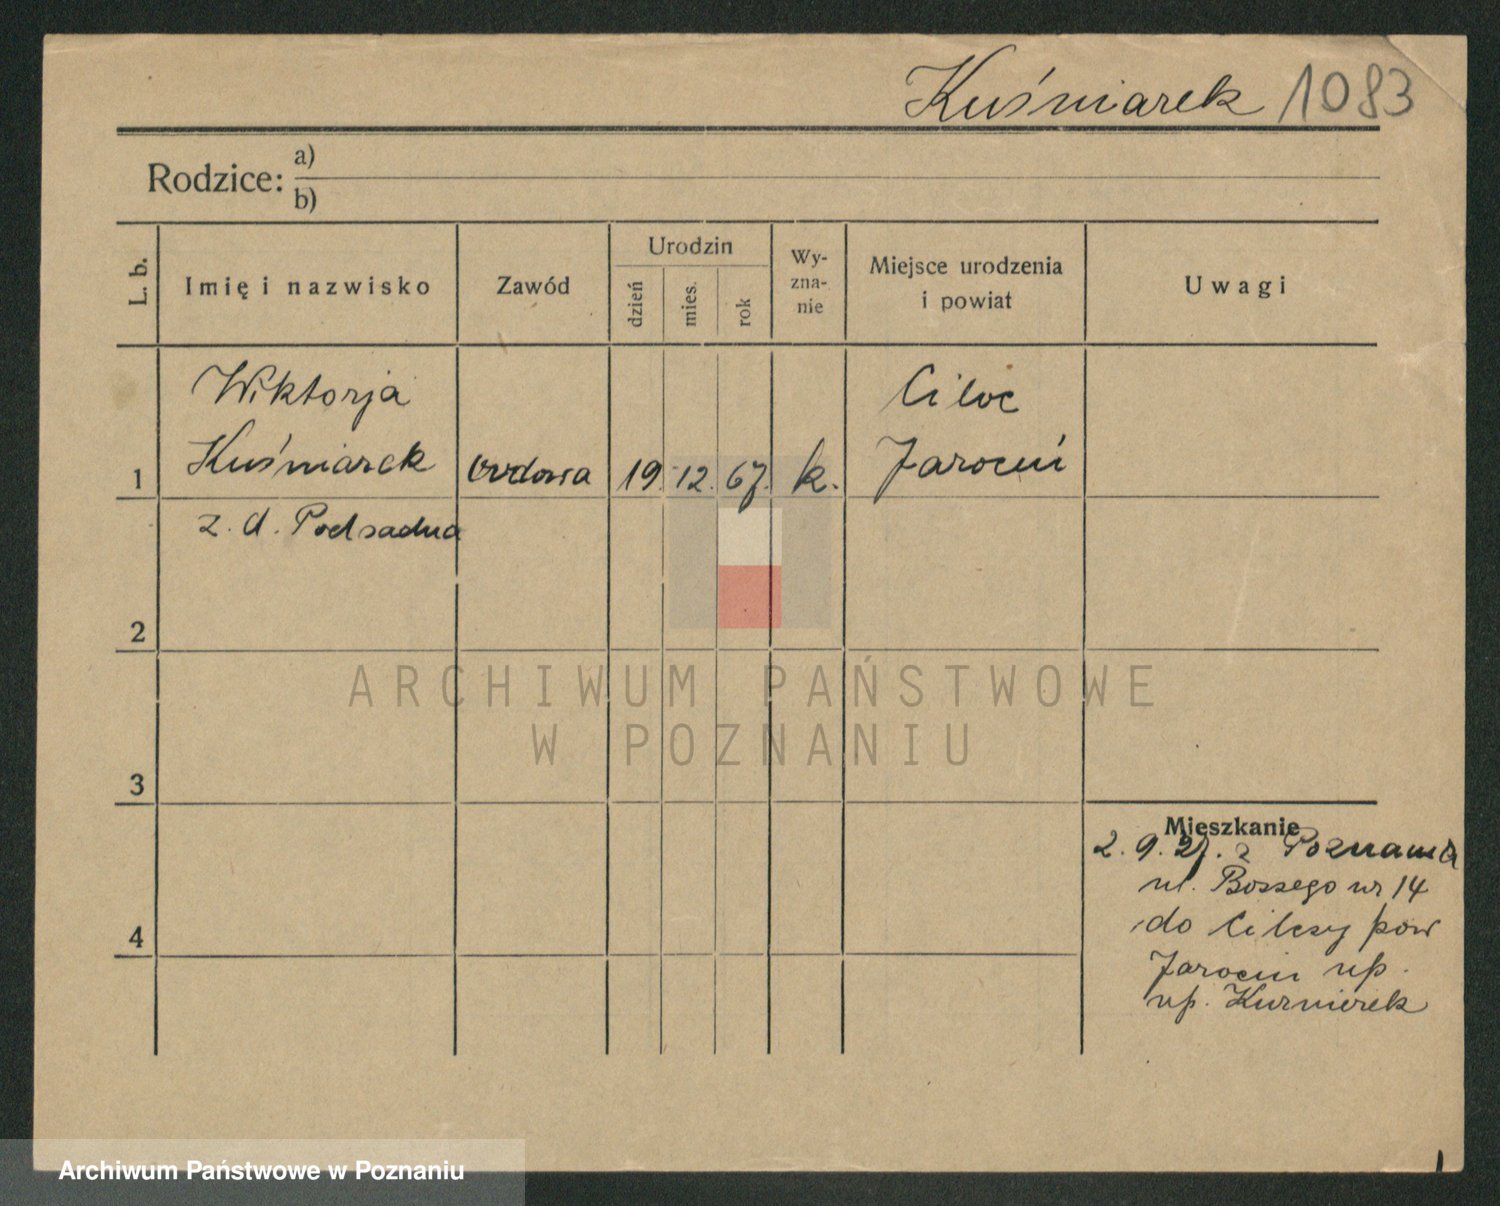 Kuśniarek 1083
Rodzice: a)
b)
L. b.
Imię i nazwisko
Zawód
Urodzin
dzień
mies.
rok
Wy-
zna-
nie
Miejsce urodzenia
i powiat
Uwagi
Wiktorja
Kuśniarek
1
wdowa
19. 12. 67.
k.
Jarocin
z. d. Podsadna
2
3
4
Mieszkanie
2. 9. 27. z Poznania
ul. nr 14
do pow
Jarocin
ARCHIWUM PAŃSTWOWE
W POZNANIU
Archiwum Państwowe w Poznaniu